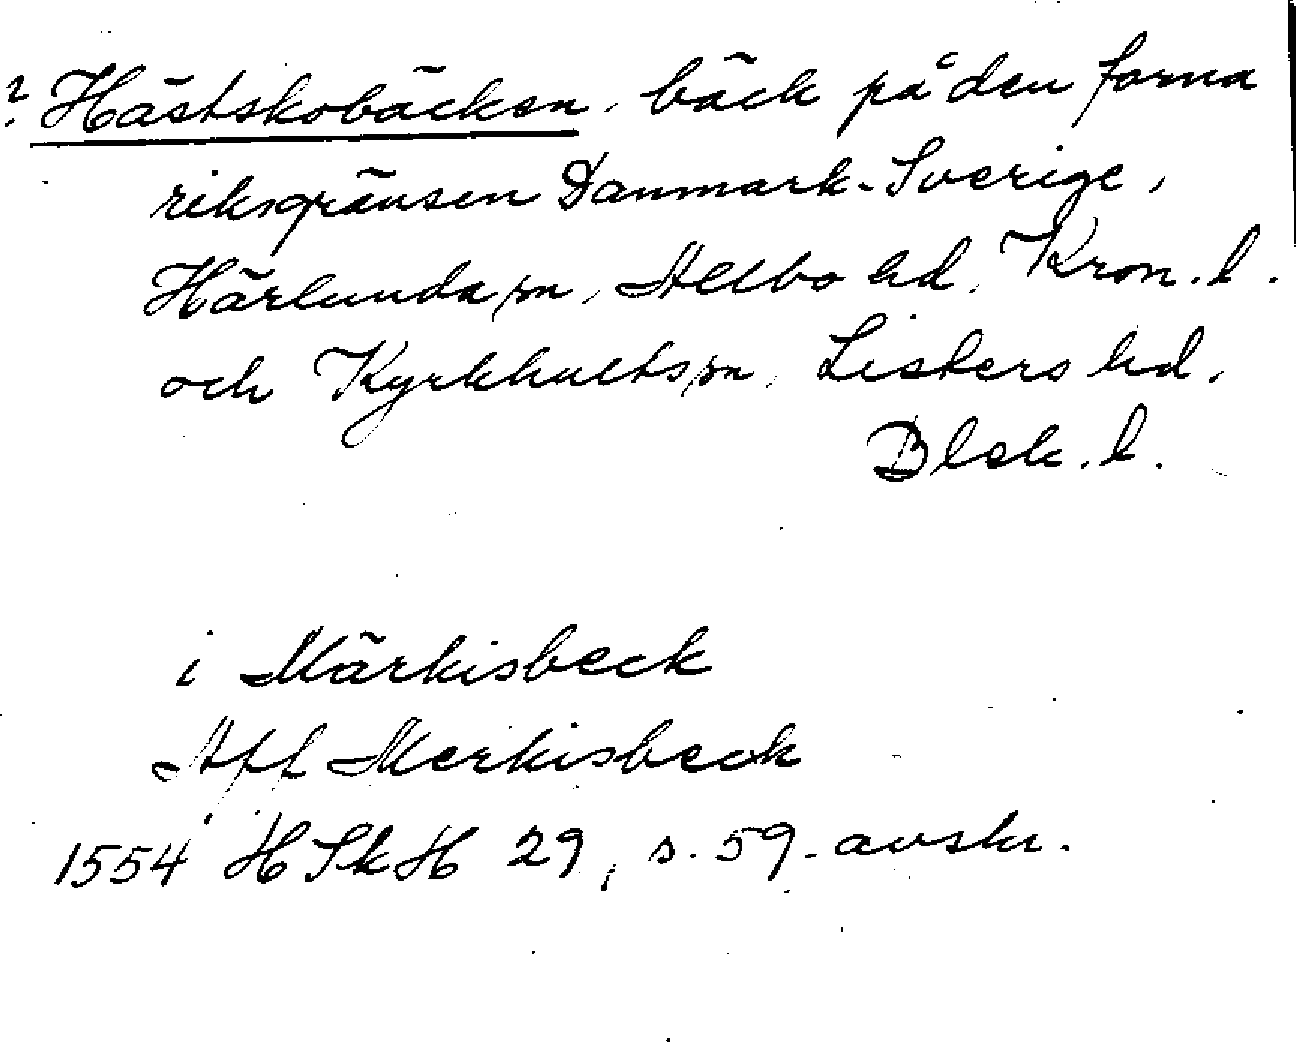 ? Hästskobäcken, bäck på den forna
riksgränsen Danmark-Sverige,
Härlunda sn, Allbo hd, Kron. l.
och Kyrkhults sn, Listers hd,
Blek. l.
i Märkisbeck
Aff Merkisbeck
1554 HSkH 29, s. 59. avskr.